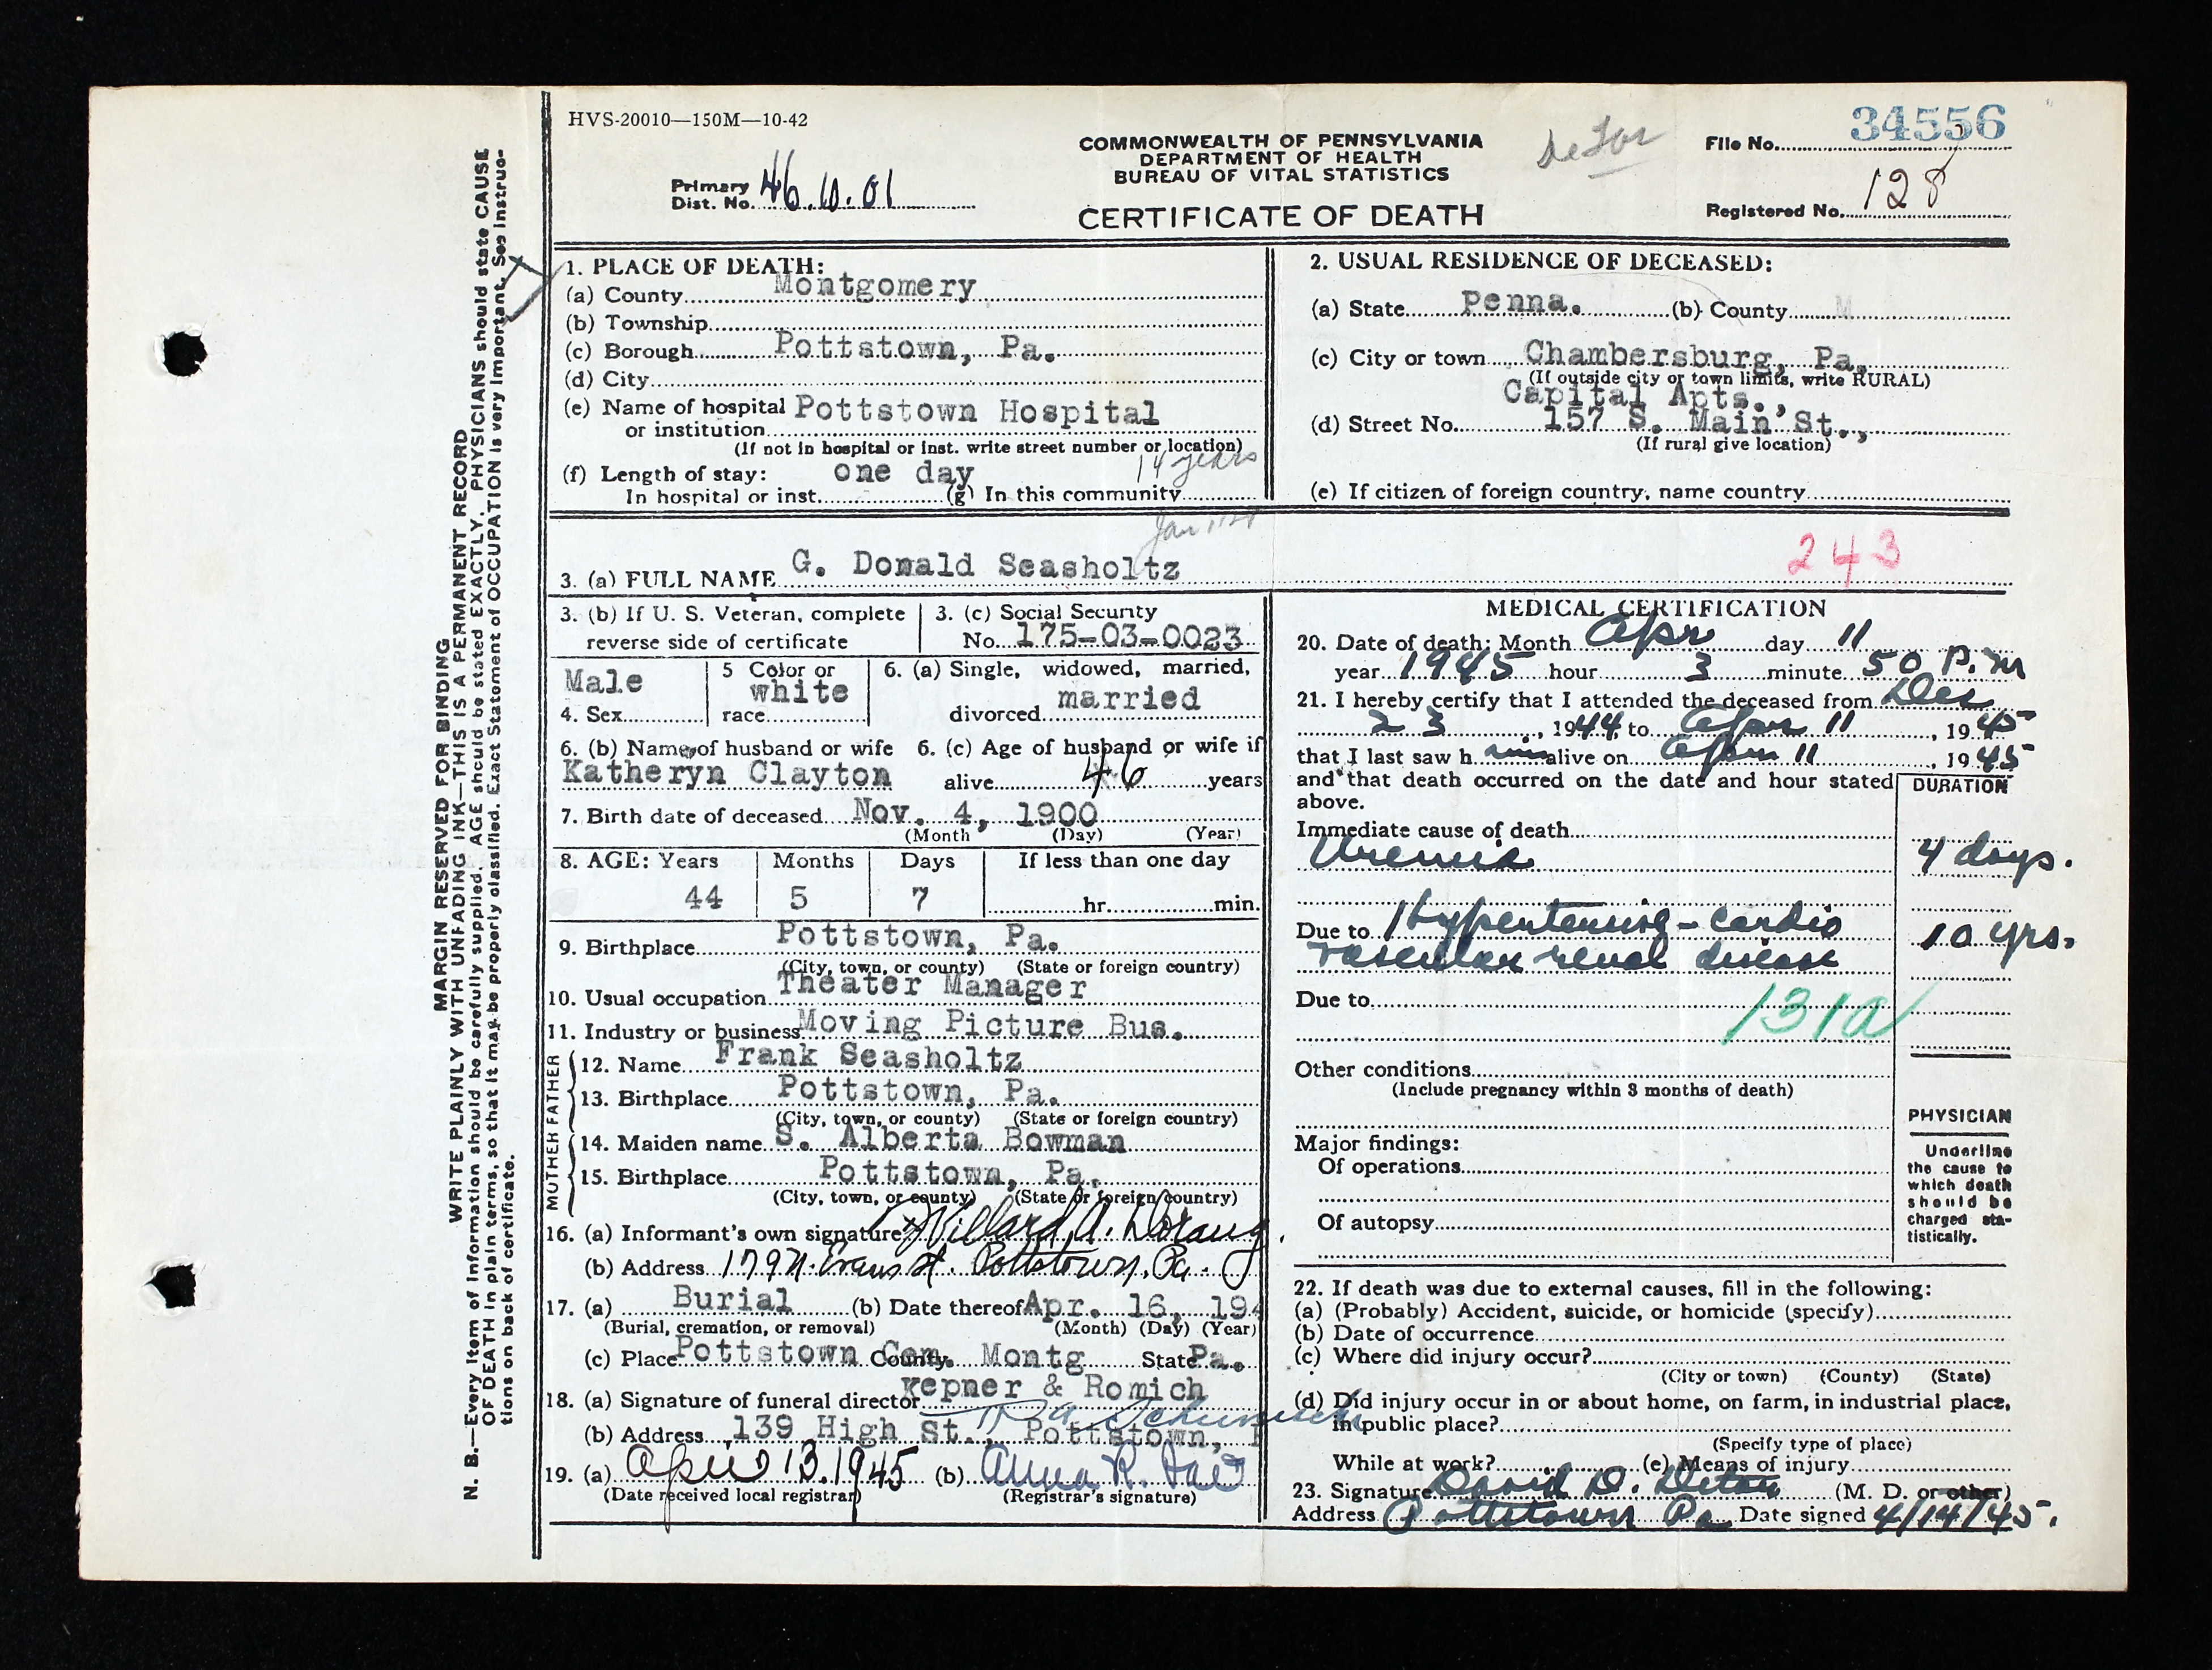 HVS-20010—150M—10-42
COMMONWEALTH OF PENNSYLVANIA
DEPARTMENT OF HEALTH
BUREAU OF VITAL STATISTICS
CERTIFICATE OF DEATH
Primary
Dist. No. 46.10.01
File No. 34556
Registered No. 128
MARGIN RESERVED FOR BINDING
WRITE PLAINLY WITH UNFADING INK—THIS IS A PERMANENT RECORD
N. B.—Every item of information should be carefully supplied. AGE should be stated EXACTLY. PHYSICIANS should state CAUSE
OF DEATH in plain terms, so that it may be properly classified. Exact Statement of OCCUPATION is very important. See instruc-
tions on back of certificate.
1. PLACE OF DEATH:
(a) County Montgomery
(b) Township
(c) Borough Pottstown, Pa.
(d) City
(e) Name of hospital Pottstown Hospital
or institution
(If not in hospital or inst. write street number or location)
14 years
(f) Length of stay: one day
In hospital or inst. (g) In this community
2. USUAL RESIDENCE OF DECEASED:
(a) State Penna. (b) County M
(c) City or town Chambersburg, Pa.
(If outside city or town limits, write RURAL)
Capital Apts.,
(d) Street No. 157 S. Main St.,
(If rural give location)
(e) If citizen of foreign country, name country
243
3. (a) FULL NAME G. Donald Seasholtz
3. (b) If U. S. Veteran, complete
reverse side of certificate
3. (c) Social Security
No. 175-03-0023
Male
4. Sex
5 Color or
white
race
6. (a) Single, widowed, married,
married
divorced
6. (b) Name of husband or wife
Katheryn Clayton
6. (c) Age of husband or wife if
alive 46 years
7. Birth date of deceased Nov. 4, 1900
(Month (Day) (Year)
8. AGE: Years Months Days If less than one day
44 5 7 hr. min.
9. Birthplace Pottstown, Pa.
(City, town, or county) (State or foreign country)
10. Usual occupation Theater Manager
11. Industry or business Moving Picture Bus.
FATHER
12. Name Frank Seasholtz
13. Birthplace Pottstown, Pa.
(City, town, or county) (State or foreign country)
MOTHER
14. Maiden name S. Alberta Bowman
15. Birthplace Pottstown, Pa.
(City, town, or county) (State or foreign country)
16. (a) Informant's own signature Willard A.
(b) Address 179 N. Evans St. Pottstown, Pa.
17. (a) Burial (b) Date thereof Apr. 16, 194
(Burial, cremation, or removal) (Month) (Day) (Year)
(c) Place Pottstown Cem. County Montg State Pa.
Kepner & Romich
18. (a) Signature of funeral director
(b) Address 139 High St., Pottstown, P
19. (a) April 13, 1945 (b) Anna R.
(Date received local registrar) (Registrar's signature)
MEDICAL CERTIFICATION
20. Date of death: Month Apr day 11
year 1945 hour 3 minute 50 P.M
21. I hereby certify that I attended the deceased from Dec
23, 1944 to Apr 11, 1945
that I last saw h im alive on Apr 11, 1945
and that death occurred on the date and hour stated
above.
DURATION
Immediate cause of death
Uremia 4 days.
Due to Hypertensive-cardio 10 yrs.
vascular renal disease
Due to
131a
Other conditions
(Include pregnancy within 3 months of death)
Major findings:
Of operations
Of autopsy
PHYSICIAN
Underline
the cause to
which death
should be
charged sta-
tistically.
22. If death was due to external causes, fill in the following:
(a) (Probably) Accident, suicide, or homicide (specify)
(b) Date of occurrence
(c) Where did injury occur?
(City or town) (County) (State)
(d) Did injury occur in or about home, on farm, in industrial place,
in public place?
(Specify type of place)
While at work? (e) Means of injury
23. Signature David D. (M. D. or other)
Address Pottstown Pa Date signed 4/14/45.